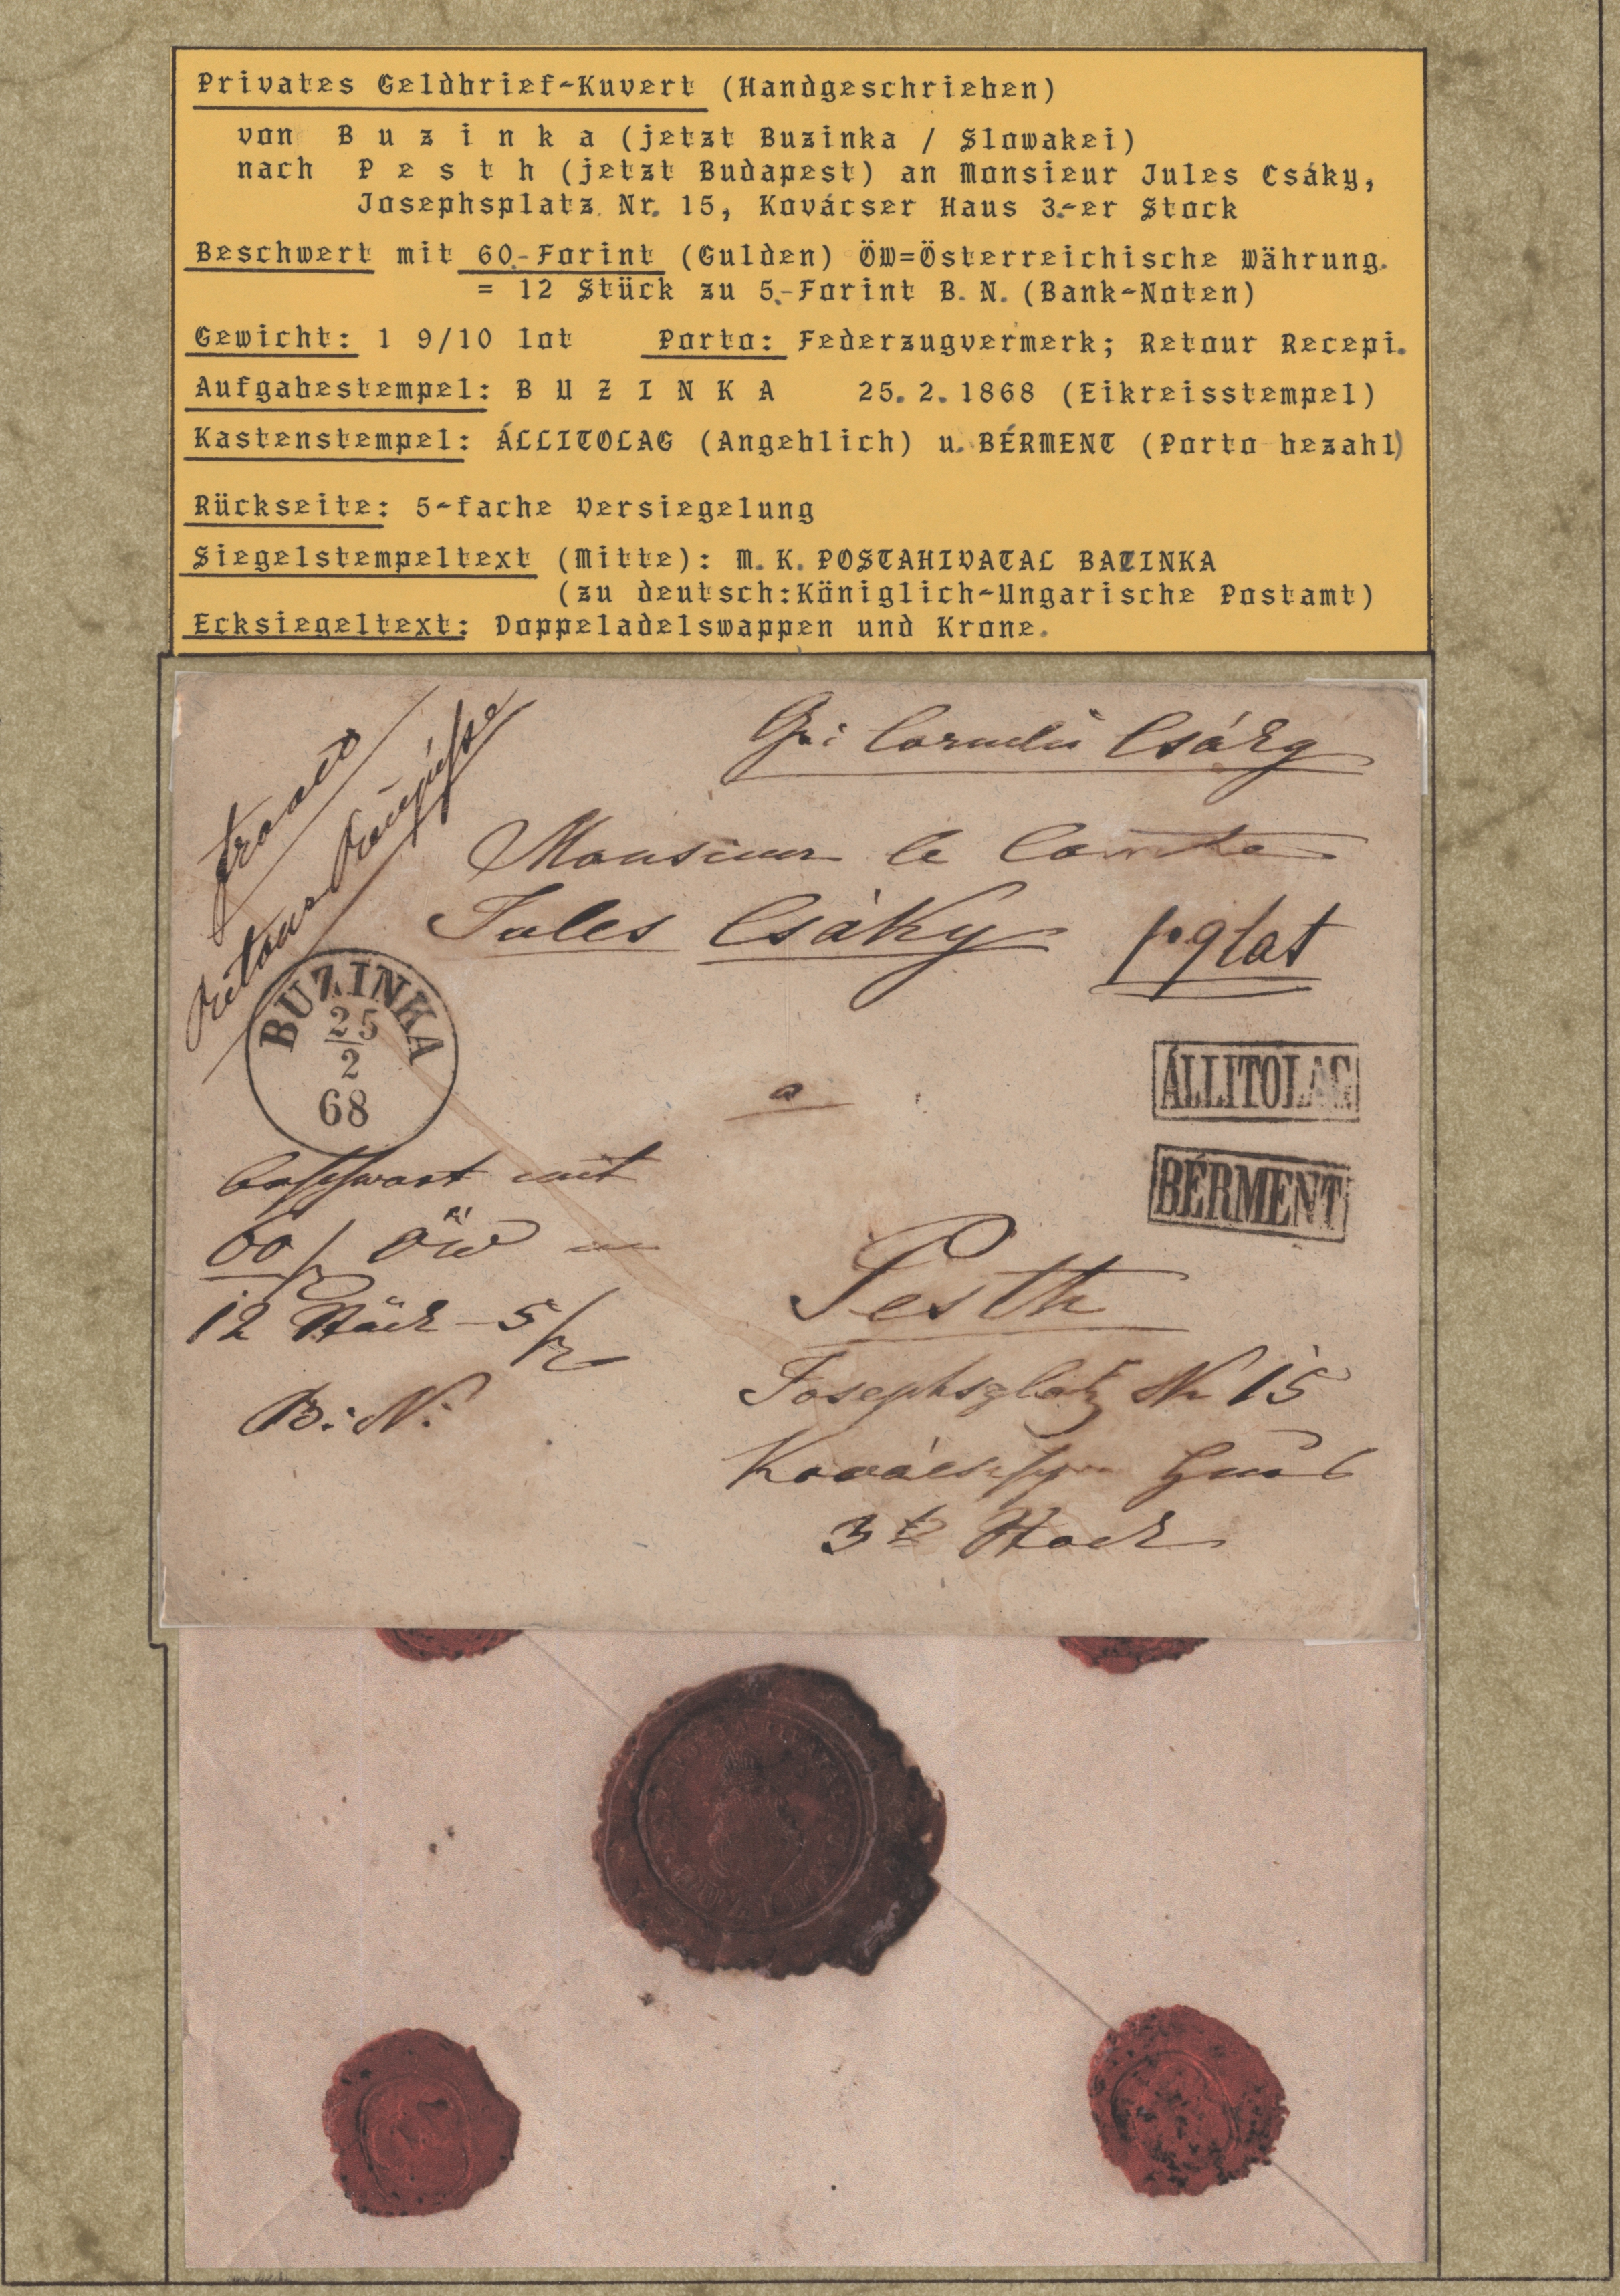 Privates Geldbrief-Kuvert (Handgeschrieben)
von B u z i n k a (jetzt Buzinka / Slowakei)
nach P e s t h (jetzt Budapest) an Monsieur Jules Csáky,
Josephsplatz Nr. 15, Kovácser Haus 3.-er Stock
Beschwert mit 60.-Forint (Gulden) ÖW=Österreichische Währung.
= 12 Stück zu 5.-Forint B. N. (Bank-Noten)
Gewicht: 1 9/10 lot Porto: Federzugvermerk; Retour Recepi.
Aufgabestempel: B U Z I N K A 25. 2. 1868 (Eikreisstempel)
Kastenstempel: ÁLLITOLAG (Angeblich) u. BÉRMENT (Porto bezahl)
Rückseite: 5-fache Versiegelung
Siegelstempeltext (Mitte): M. K. POSTAHIVATAL BATINKA
(zu deutsch:Königlich-Ungarische Postamt)
Ecksiegeltext: Doppeladelswappen und Krone.
franco
Retour
Csáky
Monsieur le Comte
Jules Csáky
1·9 lat
BUZINKA
25
2
68
ÁLLITOLAG
a
BÉRMENT
beschwert mit
60 f ÖW in
12 Stück - 5 f
B: N:
Pesth
Josephsplatz Nr 15
Haus
3te Stock